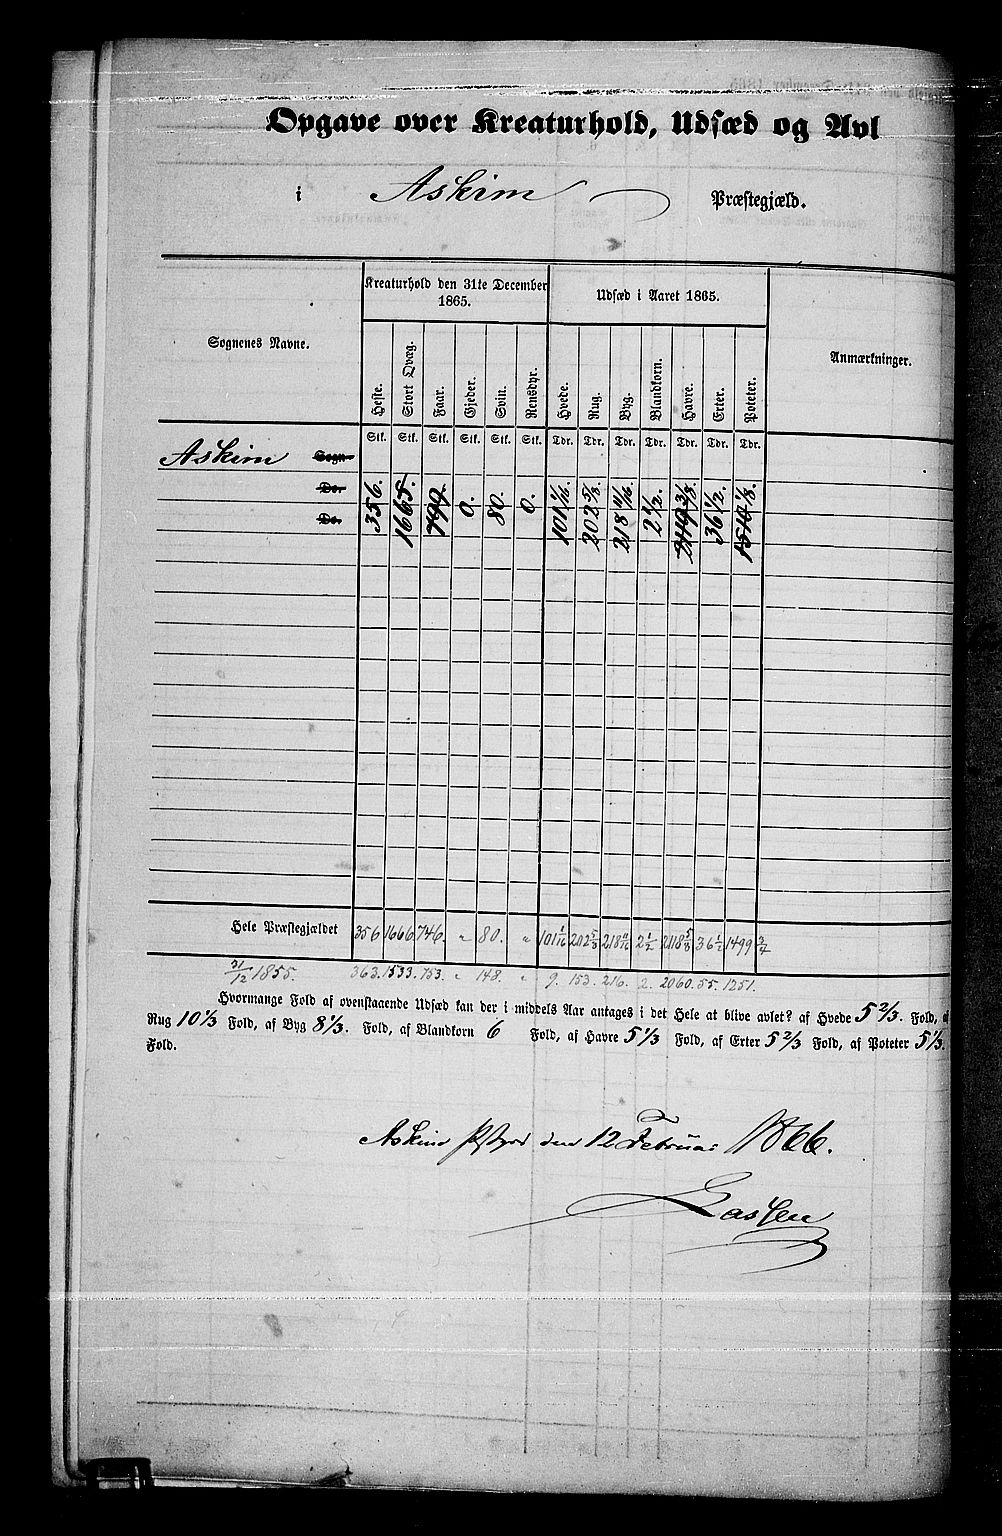 Opgave over Kreaturhold, Udsæd og Avl
i Askim Præstegjæld.
Sognenes Navne. Kreaturhold den 31te December 1865. Udsæd i Aaret 1865. Anmærkninger.
Heste. Stort Qvæg. Faar. Gjeder. Svin. Rensdyr. Hvede. Rug. Byg. Blandkorn. Havre. Erter. Poteter.
Stk. Stk. Stk. Stk. Stk. Stk. Tdr. Tdr. Tdr. Tdr. Tdr. Tdr. Tdr.
Askim Sogn
Do.
Do.
356. 1665. 0. 80. 0. 101 1/16 202 5/8 218 11/16 2 1/2 36 1/2
Hele Præstegjældet 356 1666 746. " 80. " 101 1/16 202 5/8 218 11/16 2 1/2 2118 5/8 36 1/2 1499 3/4
31/12 1855. 363. 1533. 753. " 148. " 9. 153. 216. 2. 2060. 55. 1251.
Hvormange Fold af ovenstaaende Udsæd kan der i middels Aar antages i det Hele at blive avlet? af Hvede 5 2/3. Fold, af
Rug 10 1/3 Fold, af Byg 8 1/3. Fold, af Blandkorn 6 Fold, af Havre 5 1/3 Fold, af Erter 5 2/3 Fold, af Poteter 5 1/3.
Fold.
Askim den 12 Februar 1866.
Lassen